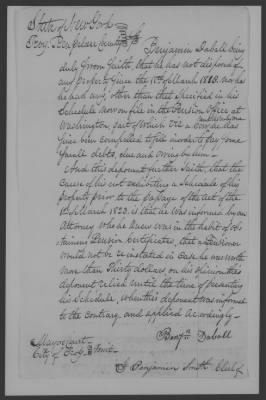 State of New York
Troy Rensselaer County ss
Benjamin Deball being
duly sworn saith that he has not disposed of
any Property since the 18th March 1818, nor has
he had any other than that specified in his
Schedule now on file in the Pension office at
Washington, part of Which Viz a Cow
he has
been Compelled to sell inorder to pay some
small debts, due and owing by him –
And this deponant further Saith, that the
Cause of his not exhibiting a Schedule of his
property prior to the Passage of the Act of the
1st March 1823. is that he was informed by an
Attorney who he knew was in the habit of ob
taining Pension Certificates, that a Pensioner
would not be reinstated in Case he was worth
more than Thirty dollars on his
deponent relied Until the time of Presenting
his Schedule, when this deponant was informed
to the Contrary and applied Accordingly –
Benjn Deball
Mayors Court
City of Troy
Benjamin Smith Clerk